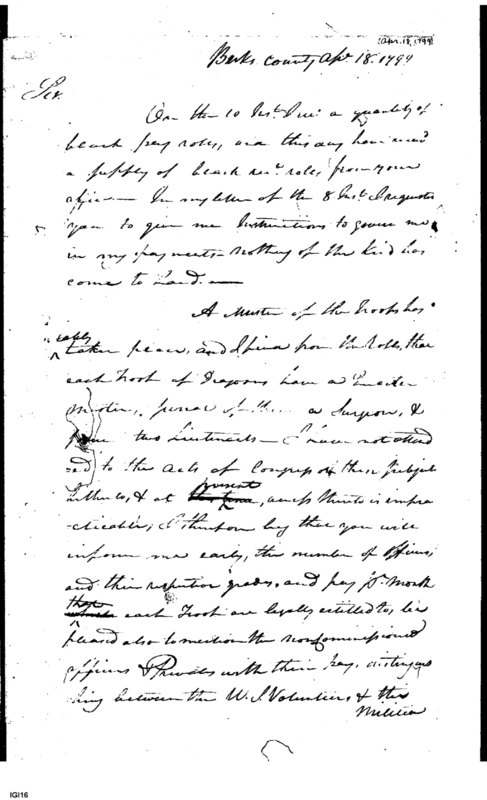 [Apr. 18, 1799]
Berks County Apr. 18. 1799
Sir.
On the 10 Inst. a quantity of
blank pay roles, and this day have recd
a supply of blank roles, from your
office — In my letter of the 8 Inst. I requested
you to give me Instructions to govern me
in my payments — nothing of the kind has
come to hand. —
A Muster of the troops has
taken place, and I find from the Rolls, that
each Troop of Dragoons have a Quarter
Master, some of them a Surgeon, &
two Lieutenants — I have not attend
ed to the acts of Congress on this Subject
hitherto, & at present, access thereto is impra
cticable; I therefore beg that you will
inform me early, the number of officers,
and their respective grades, and pay pr. Month
that
each Troop are legally entitled to, be
pleased also to mention the noncommissioned
officers & Privates with their pay, distinguis
hing between the U. S. Volunteers, & the
Militia
IGI16